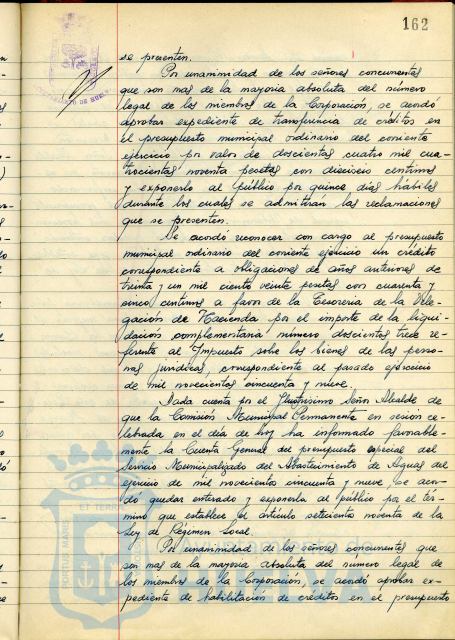 162
se presenten.
Por unanimidad de los señores concurrentes
que son mas de la mayoria absoluta del número
legal de los miembros de la Corporación, se acordó
aprobar expediente de transferencia de creditos en
el presupuesto municipal ordinario del corriente
ejercicio por valor de doscientas cuatro mil cua-
trocientas noventa pesetas con dieciseis centimos
y exponerlo al público por quince dias hábiles
durante los cuales se admitiran las reclamaciones
que se presenten.
Se acordó reconocer con cargo al presupuesto
municipal ordinario del corriente ejercicio un crédito
correspondiente a obligaciones de años anteriores de
treinta y un mil ciento veinte pesetas con cuarenta y
cinco centimos a favor de la Tesoreria de la Dele-
gación de Hacienda por el importe de la liqui-
dación complementaria número doscientos trece re-
ferente al Impuesto sobre los bienes de las perso-
nas juridicas, correspondiente al pasado ejercicio
de mil novecientos cincuenta y nueve.
Dada cuenta por el Ilustrisimo Señor Alcalde de
que la Comisión Municipal Permanente en sesión ce-
lebrada en el dia de hoy ha informado favorable-
mente la Cuenta General del presupuesto especial del
Servicio Municipalizado del Abastecimiento de Aguas del
ejercicio de mil novecientos cincuenta y nueve, se acor-
dó quedar enterado y exponerla al público por el tér-
mino que establece el artículo setecientos noventa de la
Ley de Régimen Local.
Por unanimidad de los señores concurrentes que
son mas de la mayoria absoluta del numero legal de
los miembros de la Corporación, se acordó aprobar ex-
pediente de habilitación de créditos en el presupuesto